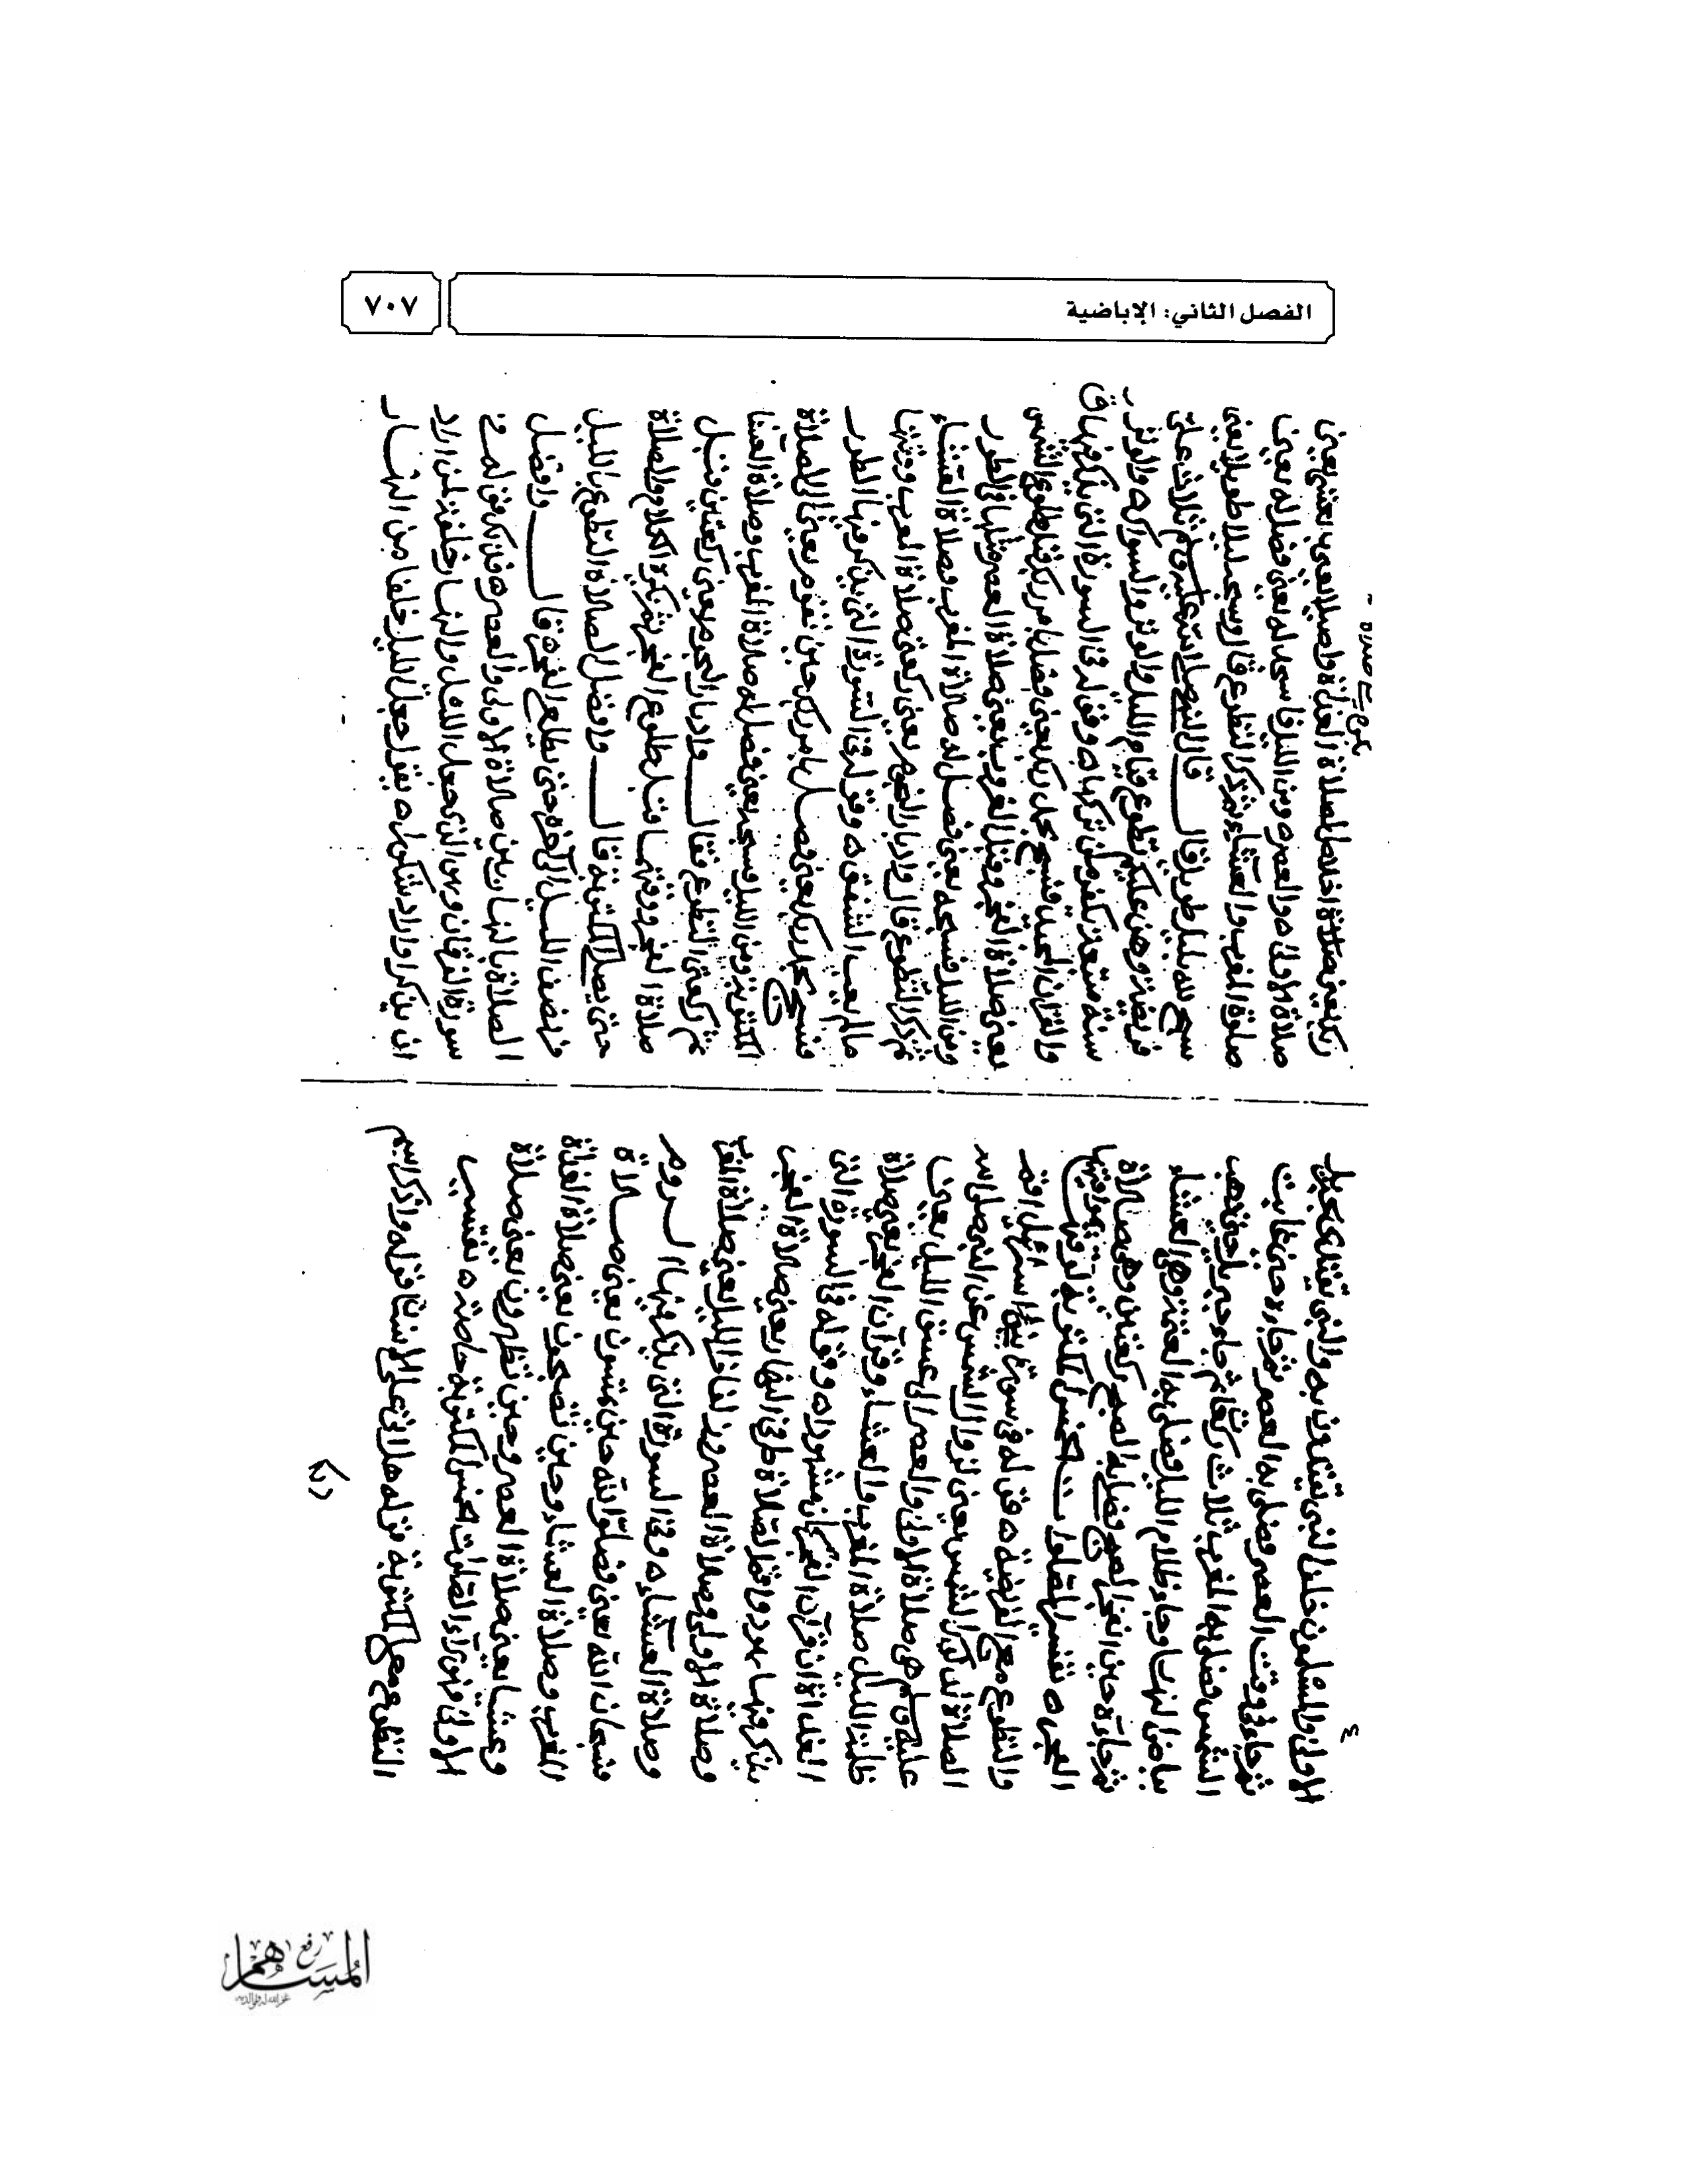 الفصل الثاني: الإباضية
٧٠٧
الاولى والمسلمون خلف النبي يقتدون به والنبي يقتدي بجبريل
ثم جاء في وقت العصر فصلى به العصر ثم جاءه حين غابت
الشمس فصلى به المغرب ثلاث ركعات ثم جاء جبريل حين ذهب
بياض النهار وجاء ظلام الليل فصلى به العتمة وهي العشاء
ثم جاءه حين انفجر الصبح فصلى به الصبح ركعتين وهي صلاة
الفجر ه تفسير الصلوات الخمس المكتوبة
والتطوع مع الفريضة ه قوله في سورة بني اسرائيل اقم
الصلاة لدلوك الشمس يعني لزوال الشمس عن النبي صلى الله
عليه وسلم هي صلاة الاولى والعصر الى غسق الليل يعني
ظلمة الليل صلاة المغرب والعشاء وقرآن الفجر يعني صلاة
الغداة ان قرآن الفجر كان مشهودا ه وقوله في السورة التي
يذكر فيها هود واقم الصلاة طرفي النهار يعني صلاة الفجر
وصلاة الاولى وصلاة العصر وزلفا من الليل يعني صلاة
وصلاة العشاء ه وفي السورة التي يذكر فيها الروم
فسبحان الله يعني فصلوا لله حين تمسون يعني صلاة
المغرب وصلاة العشاء وحين تصبحون يعني صلاة الغداة
وعشيا يعني صلاة العصر وحين تظهرون يعني صلاة
الاولى الصلوات الخمس المكتوبة خاصة ه تفسير
التطوع مع المكتوبة قوله هل اتى على الانسان قوله واذكر اسم
ربك يعني صلاة الغداة واصيلا يعني بعشي يعني
صلاة الاولى والعصر ومن الليل فاسجد له يعني فصل له يعني
صلوة المغرب والعشاء ثم ذكر التطوع فقال وسبحه ليلا طويلا يعني
سبح لله بليل طويل قال النبي صلى الله عليه وسلم ثلاث علي
فريضة وهن عليكم تطوع قيام الليل والوتر والسواك
سنة وقوله في السورة التي يذكر فيها ق
والقرآن المجيد فسبح بحمد ربك يعني فصل بامر ربك قبل طلوع الشمس
يعني صلاة الفجر وقبل الغروب يعني صلاة العصر ومثلها في الطور
ومن الليل فسبحه يعني فصل له صلاة المغرب وصلاة العشاء
ثم ذكر التطوع قال وادبار السجود يعني ركعتي صلاة المغرب وقتها
ما لم يغب الشفق ه وقوله في السورة التي يذكر فيها الطور
فسبح بحمد ربك يعني فصل بامر ربك حين تقوم يعني الى الصلاة
المكتوبة ومن الليل فسبحه يعني فصل له صلاة المغرب وصلاة العشا
ثم ذكر التطوع فقال وادبار النجوم يعني ركعتين قبل
صلاة الفجر وقتهما قبل طلوع الفجر ثم يكره الكلام والصلاة
حتى يصلي المكتوبة قال وافضل الصلاة التطوع بالليل
من نصف الليل الى آخره حتى يطلع الفجر ه قال وافضل
الصلاة بالنهار بين صلاة الاولى والعصر ه قوله في
سورة الفرقان وهو الذي جعل الليل والنهار خلفة لمن اراد
ان يذكر او اراد شكورا ه يقول جعل الليل خلفا من النهار
المساهم
رفع